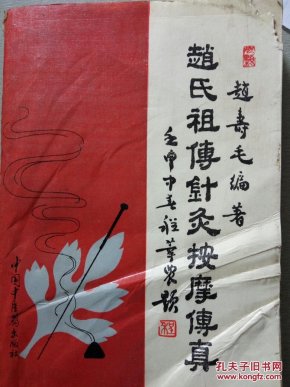 趙壽毛編著
趙氏祖傳針灸按摩傳真
壬申中春程莘農题
中国中医药出版社
孔夫子旧书网